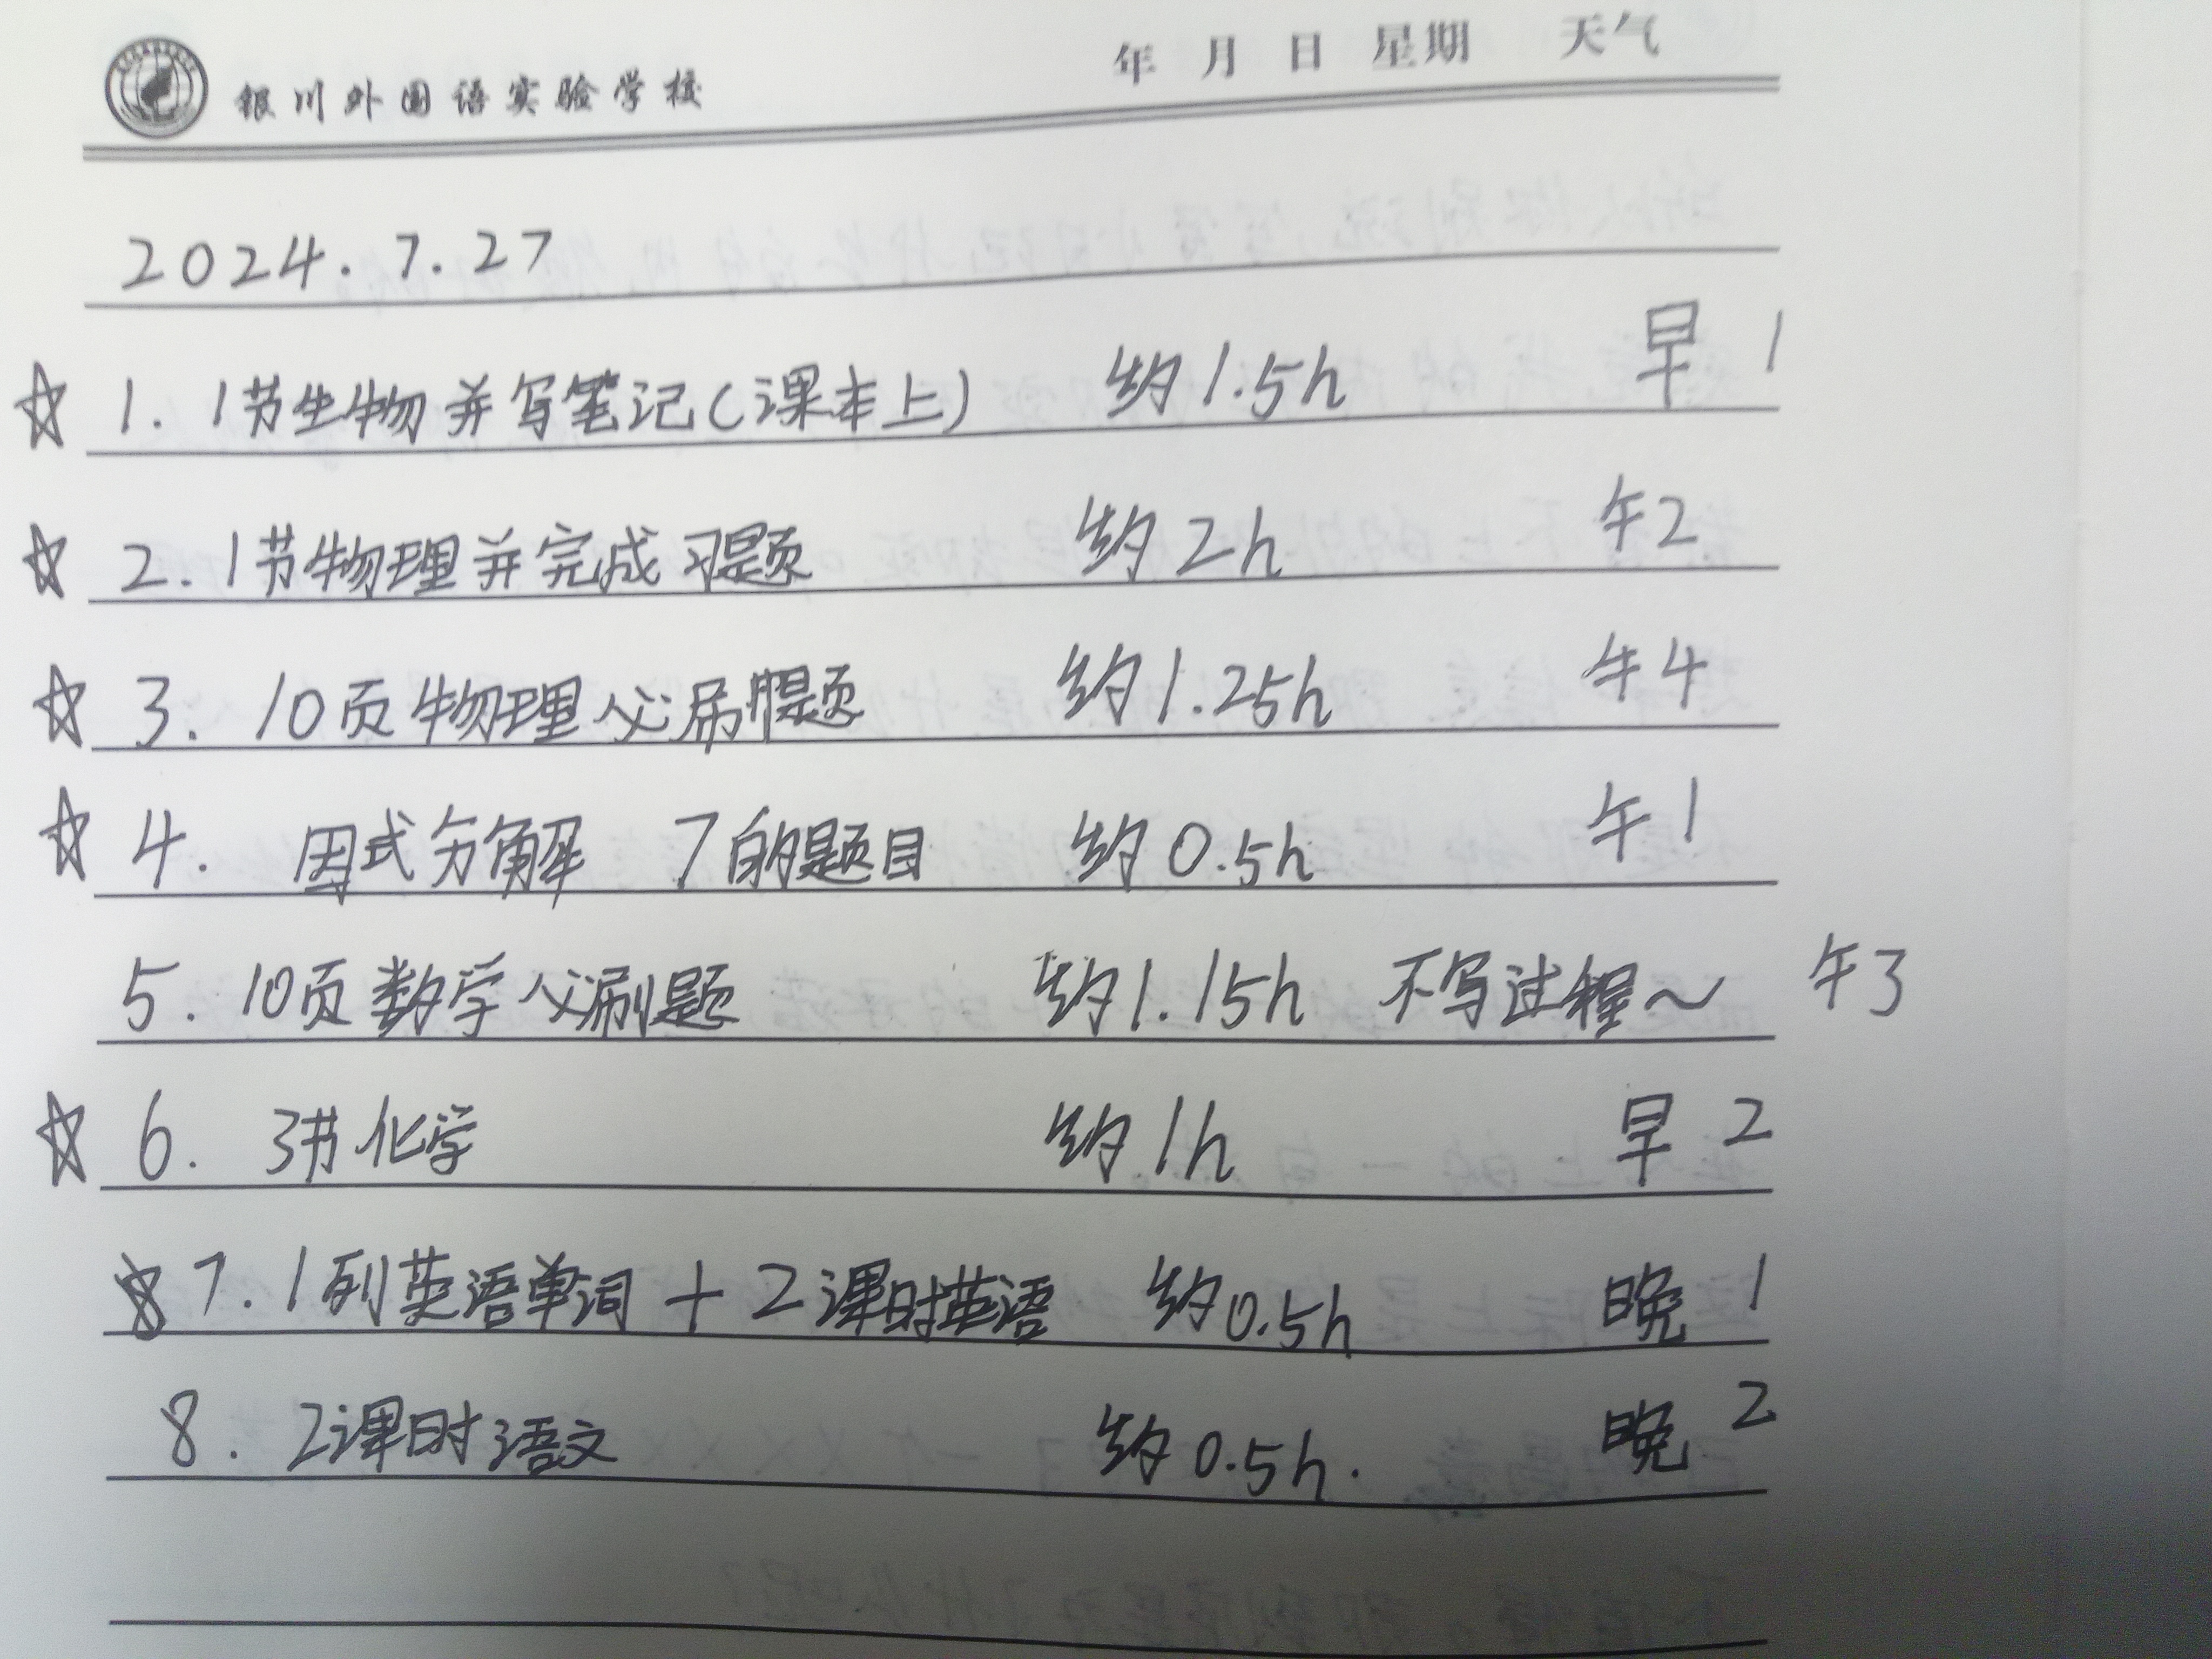 银川外国语实验学校 年 月 日 星期 天气
2024.7.27
☆ 1. 1节生物并写笔记(课本上) 约1.5h 早1
☆ 2. 1节物理并完成习题 约2h 午2
☆ 3. 10页物理必刷题 约1.25h 午4
☆ 4. 因式分解 7的题目 约0.5h 午1
5. 10页数学必刷题 约1.15h 不写过程～ 午3
☆ 6. 3节化学 约1h 早2
☆ 7. 1列英语单词+2课时英语 约0.5h 晚1
8. 2课时语文 约0.5h. 晚2